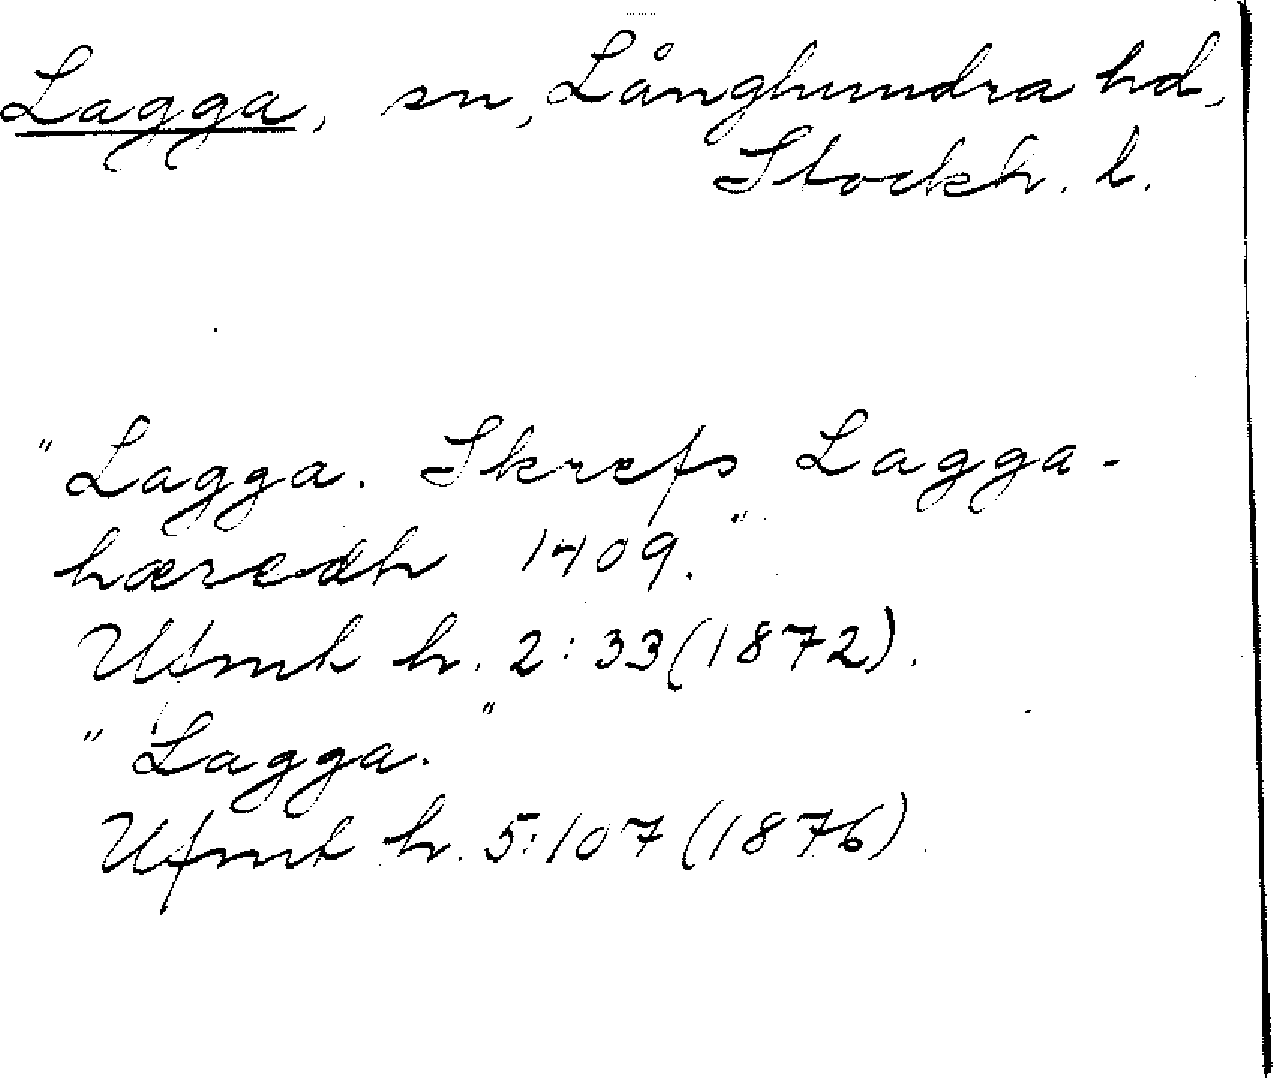 Lagga, sn, Långhundra hd,
Stockh. l.
"Lagga. Skrefs Lagga-
hæredh 1409."
Ufmh h. 2:33 (1872).
"Lagga."
Ufmh h. 5:107 (1876).